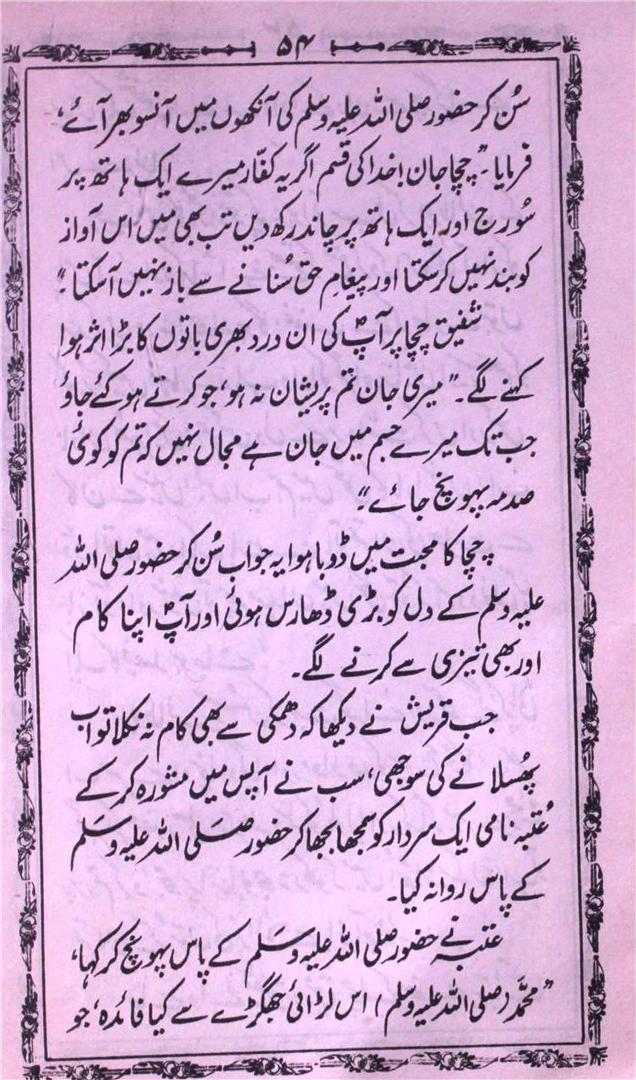 ۵۴
سُن کر حضور صلی اللہ علیہ وسلم کی آنکھوں میں آنسو بھر آئے،
فرمایا۔ ”چچا جان! خدا کی قسم اگر یہ کفّار میرے ایک ہاتھ پر
سُورج اور ایک ہاتھ پر چاند رکھ دیں تب بھی میں اس آواز
کو بند نہیں کر سکتا اور پیغامِ حق سُنانے سے باز نہیں آ سکتا۔“
شفیق چچا پر آپؐ کی ان درد بھری باتوں کا بڑا اثر ہوا
کہنے لگے۔ ”میری جان تم پریشان نہ ہو، جو کرتے ہو کئے جاؤ
جب تک میرے جسم میں جان ہے مجال نہیں کہ تم کو کوئی
صدمہ پہونچ جائے“۔
چچا کا محبت میں ڈوبا ہوا یہ جواب سُن کر حضور صلی اللہ
علیہ وسلم کے دل کو بڑی ڈھارس ہوئی اور آپؐ اپنا کام
اور بھی تیزی سے کرنے لگے۔
جب قریش نے دیکھا کہ دھمکی سے بھی کام نہ نکلا تو اب
پھُسلانے کی سوجھی، سب نے آپس میں مشورہ کر کے
عُتبہ نامی ایک سردار کو سمجھا بجھا کر حضور صَلی اللہ علیہ وسَلم
کے پاس روانہ کیا۔
عتبہ نے حضور صلی اللہ علیہ وسَلم کے پاس پہونچ کر کہا،
”محمدؐ (صلی اللہ علیہ وسلم) اس لڑائی جھگڑے سے کیا فائدہ، جو